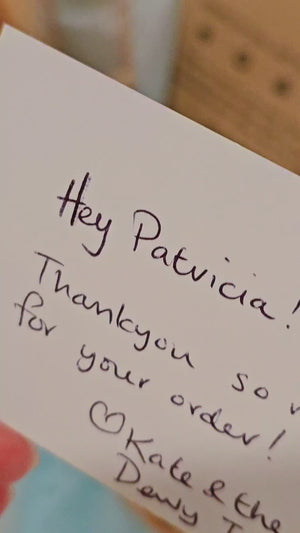 Hey Patricia!
Thankyou so
for your order!
♡ Kate & the
Dewy